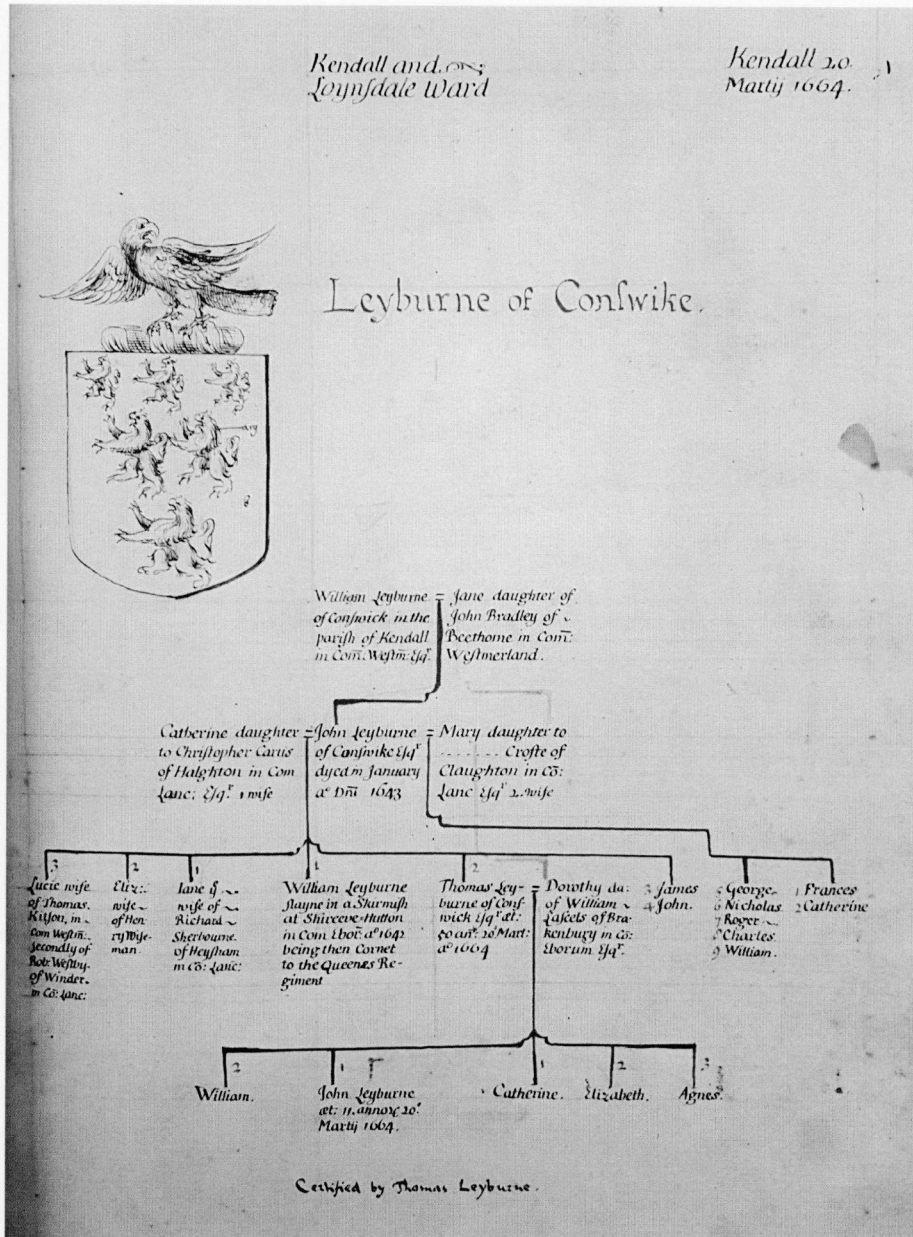 Kendall and
Loynſdale Ward
Kendall 20.
Martij 1664.
1
Leyburne of Conſwike.
William Leyburne
of Conſwick in the
pariſh of Kendall
in Com̄: Weſtm̄: Eſqr.
=
Jane daughter of
John Bradley of
Beethome in Com̄:
Weſtmerland.
Catherine daughter
to Chriſtopher Carus
of Halghton in Com
Lanc: Eſqr. 1 wife
=
John Leyburne
of Conſwike Eſqr
dyed in January
ao Dn̄i 1643
=
Mary daughter to
........ Crofte of
Claughton in Cō:
Lanc Eſqr 2. wife
3
Lucie wife
of Thomas.
Kitſon, in
Com Weſtm̄:
Secondly of
Rob: Weſtby.
of Winder.
in Cō: Lanc:
2
Eliz:
wife
of Hen-
ry Wiſe-
man.
1
Jane ye
wife of
Richard
Sherbourne.
of Heyſham
in Cō: Lanc:
1
William Leyburne
ſlayne in a Skirmiſh
at Shireeve-Hutton
in Com Ebor: ao 1642
being then Cornet
to the Queenes Re-
giment
2
Thomas Ley-
burne of Conſ-
wick Eſqr æt:
50 an̄: 20 Mart:
ao 1664
=
Dorothy da:
of William
Laſcels of Bra-
kenbury in Cō:
Eborum Eſqr.
3 James
4 John.
5 George
6 Nicholas
7 Roger
8 Charles
9 William.
1 Frances
2 Catherine
2
William.
1
John Leyburne
æt: 11. annor 20o
Martij 1664.
1
Catherine.
2
Elizabeth.
3
Agnes.
Certified by Thomas Leyburne.